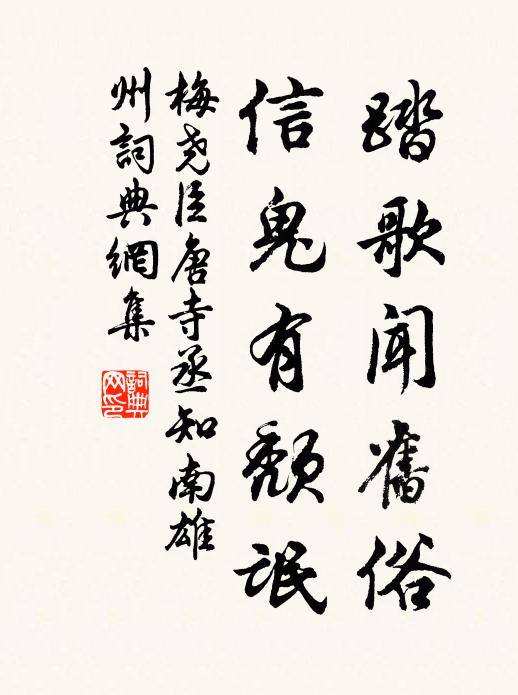 踏歌聞舊俗
信鬼有頽氓
梅堯臣唐寺丞知南雄
州詞典網集
詞典
网印